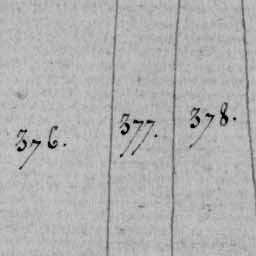 376. 377. 378.